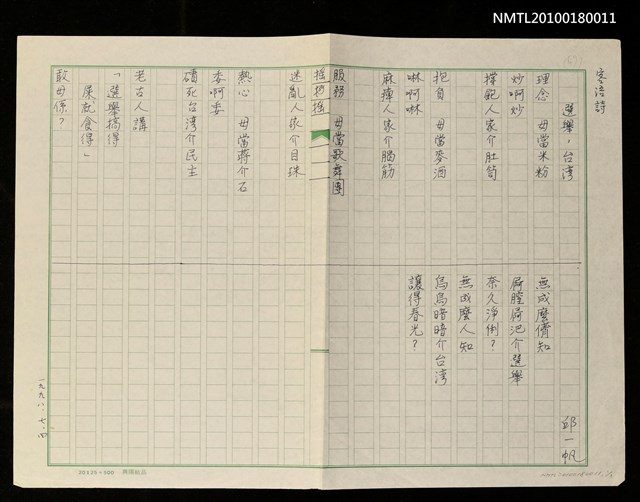 NMTL20100180011
客語詩
選舉，台湾
邱一帆
理念　毋當米粉
炒啊炒
撑飽人家介肚笥
抱負　毋當麥酒
啉啊啉
麻痺人家介腦筋
服務　毋當歌舞團
搖搖
迷亂人家介目珠
熱心　毋當蔣介石
委啊委
磧死台湾介民主
老古人講
「選舉搞得
屎就食得」
敢毋係？
無成麼儕知
屙膣屙
介選舉
奈久淨俐？
無成麼人知
烏烏暗暗介台湾
讓得春光？
一九九八.七.四
20X25=500